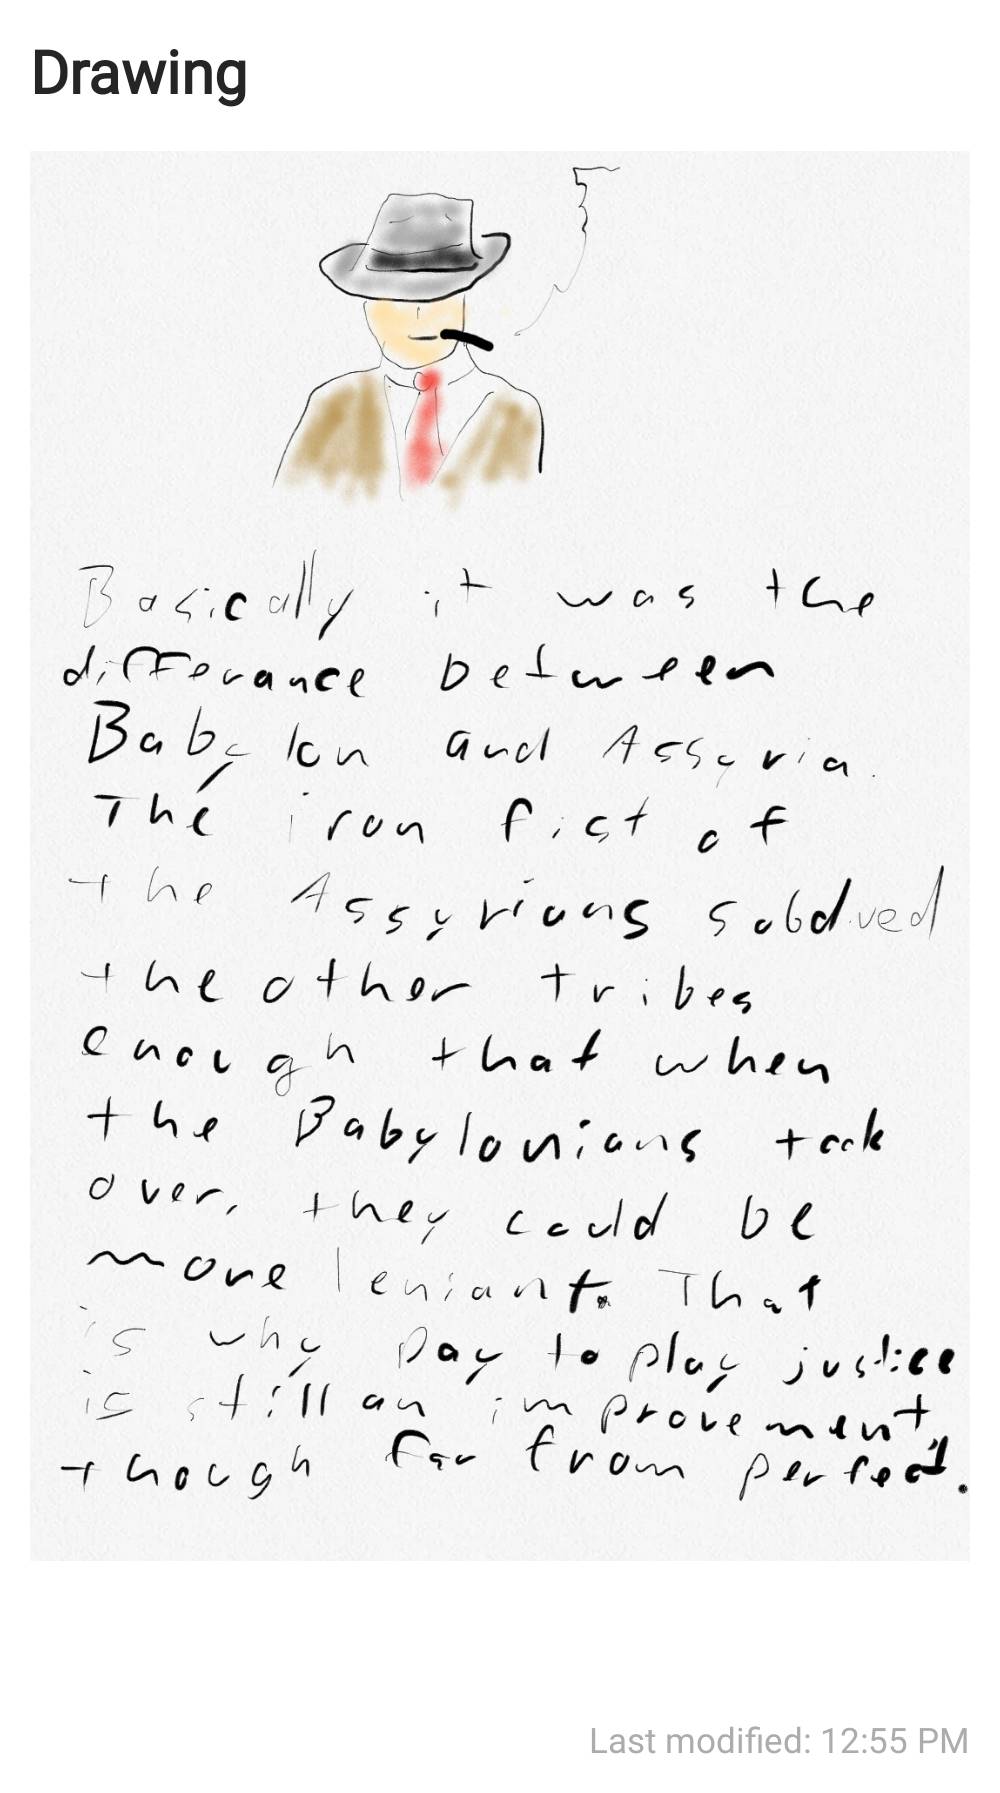 Drawing
Basically it was the
differance between
Babylon and Assyria.
The iron fist of
the Assyrians subdued
the other tribes
enough that when
the Babylonians took
over, they could be
more leniant. That
is why pay to play justice
is still an improvement,
though far from perfect.
Last modified: 12:55 PM